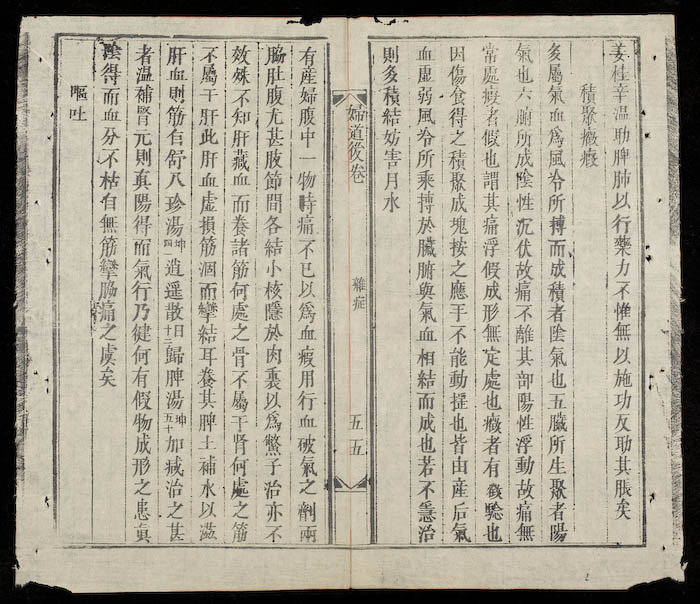 姜桂辛温助脾肺以行藥力不惟無以施功反助其脹矣
積聚癥瘕
多屬氣血爲風冷所搏而成積者陰氣也五臟所生聚者陽
氣也六腑所成陰性沉伏故痛不離其部陽性浮動故痛無
常處瘕者假也謂其痛浮假成形無定處也癥者有徴騐也
因傷食得之積聚成塊按之應手不能動揺也皆由産后氣
血虛弱風冷所乘搏於臟腑與氣血相結而成也若不急治
則多積結妨害月水
婦道後卷
雜症
五五
有産婦腹中一物時痛不已以爲血瘕用行血破氣之劑兩
脇肚腹尤甚肢節間各結小核隱於肉裏以爲鱉子治亦不
效殊不知肝藏血而養諸筋何處之骨不屬于肾何處之筋
不屬于肝此肝血虚損筋涸而攣結耳養其脾土補水以滋
肝血則筋自舒八珍湯坤四一逍遥散日十二歸脾湯坤五十加減治之甚
者温補腎元則真陽得而氣行乃徤何有假物成形之患真
陰得而血分不枯自無筋攣脇痛之虞矣
嘔吐